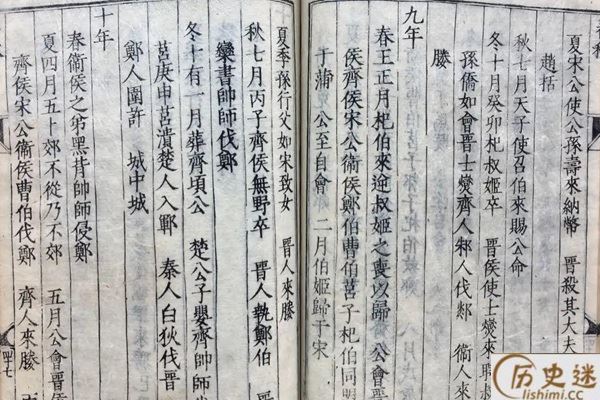 夏宋公使公孫壽來納幣　晉殺其大夫
趙括
秋七月天子使召伯來賜公命
冬十月癸卯杞叔姬卒　晉侯使士燮來聘叔
孫僑如會晉士燮齊人邾人伐郯　衞人來
媵
九年
春王正月杞伯來逆叔姬之喪以歸　公會晉
侯齊侯宋公衞侯鄭伯曹伯莒子杞伯同盟
于蒲　公至自會　二月伯姬歸于宋
夏季孫行父如宋致女　晉人來媵
秋七月丙子齊侯無野卒　晉人執鄭伯
欒書帥師伐鄭
冬十有一月葬齊頃公　楚公子嬰齊帥師伐
莒庚申莒潰楚人入鄆　秦人白狄伐晉
鄭人圍許　城中城
十年
春衞侯之弟黑背帥師侵鄭
夏四月五卜郊不從乃不郊　五月公會晉
齊侯宋公衞侯曹伯伐鄭　齊人來媵
四十七
历史迷
lishimi.cc